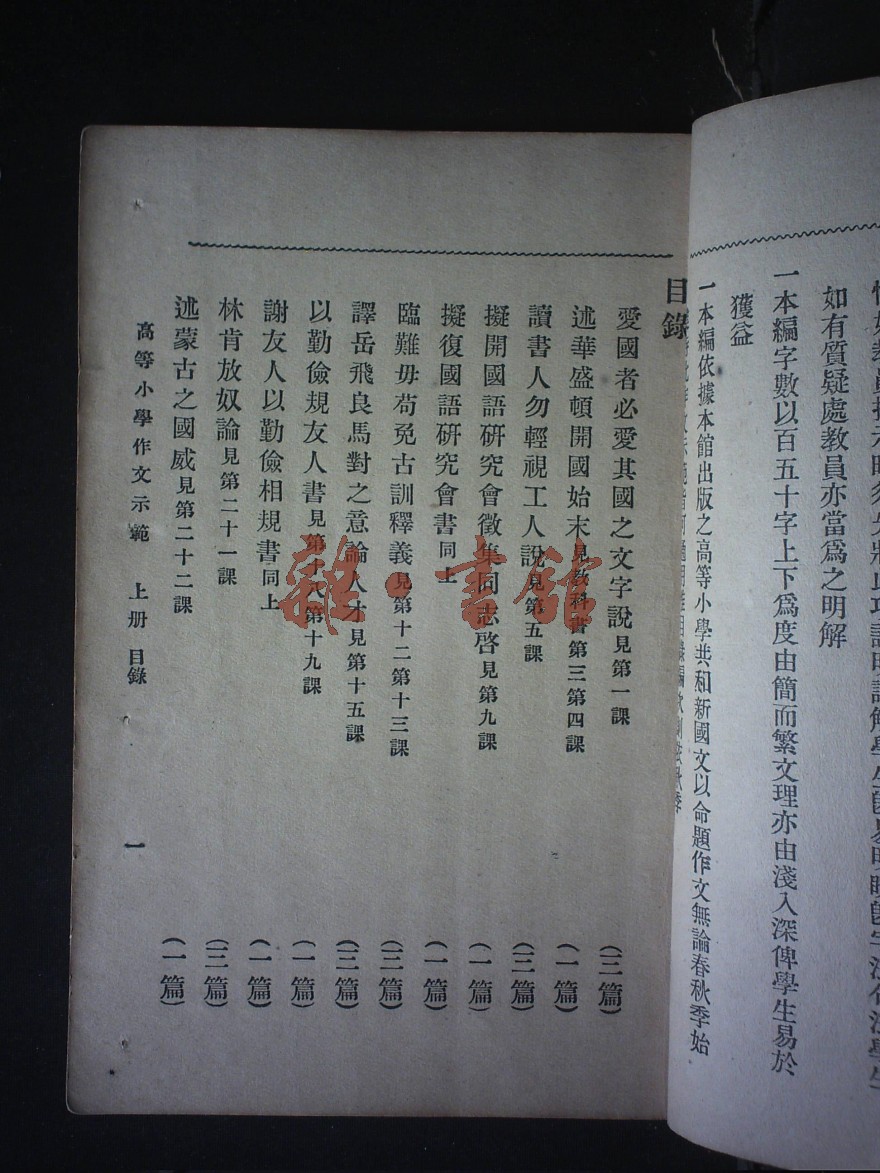 如有質疑處教員亦當爲之明解
一本編字數以百五十字上下爲度由簡而繁文理亦由淺入深俾學生易於
獲益
一本編依據本館出版之高等小學共和新國文以命題作文無論春秋季始
目錄
愛國者必愛其國之文字說見第一課(三篇)
述華盛頓開國始末見教科書第三第四課(一篇)
讀書人勿輕視工人說見第五課(三篇)
擬開國語研究會徵集同志啓見第九課(一篇)
擬復國語研究會書同上(一篇)
臨難毋苟免古訓釋義見第十二第十三課(三篇)
譯岳飛良馬對之意論人才見第十五課(三篇)
以勤儉規友人書見第十八第十九課(一篇)
謝友人以勤儉相規書同上(一篇)
林肯放奴論見第二十一課(三篇)
述蒙古之國威見第二十二課(一篇)
高等小學作文示範 上册 目錄 一
雜·書館